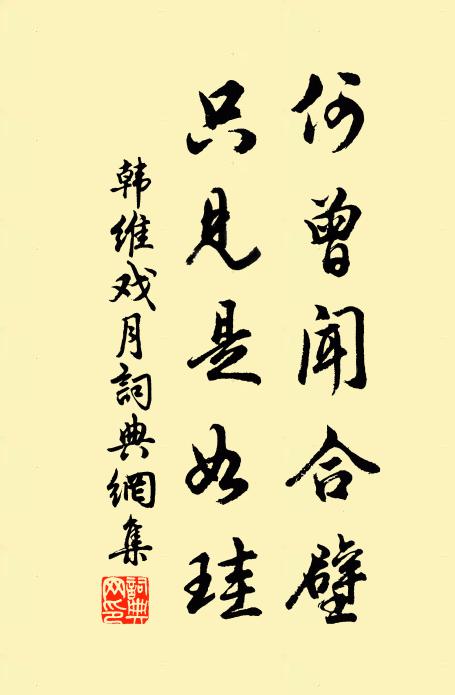 何曾闻合壁
只見是如珪
韩维戏月詞典網集
詞典网印